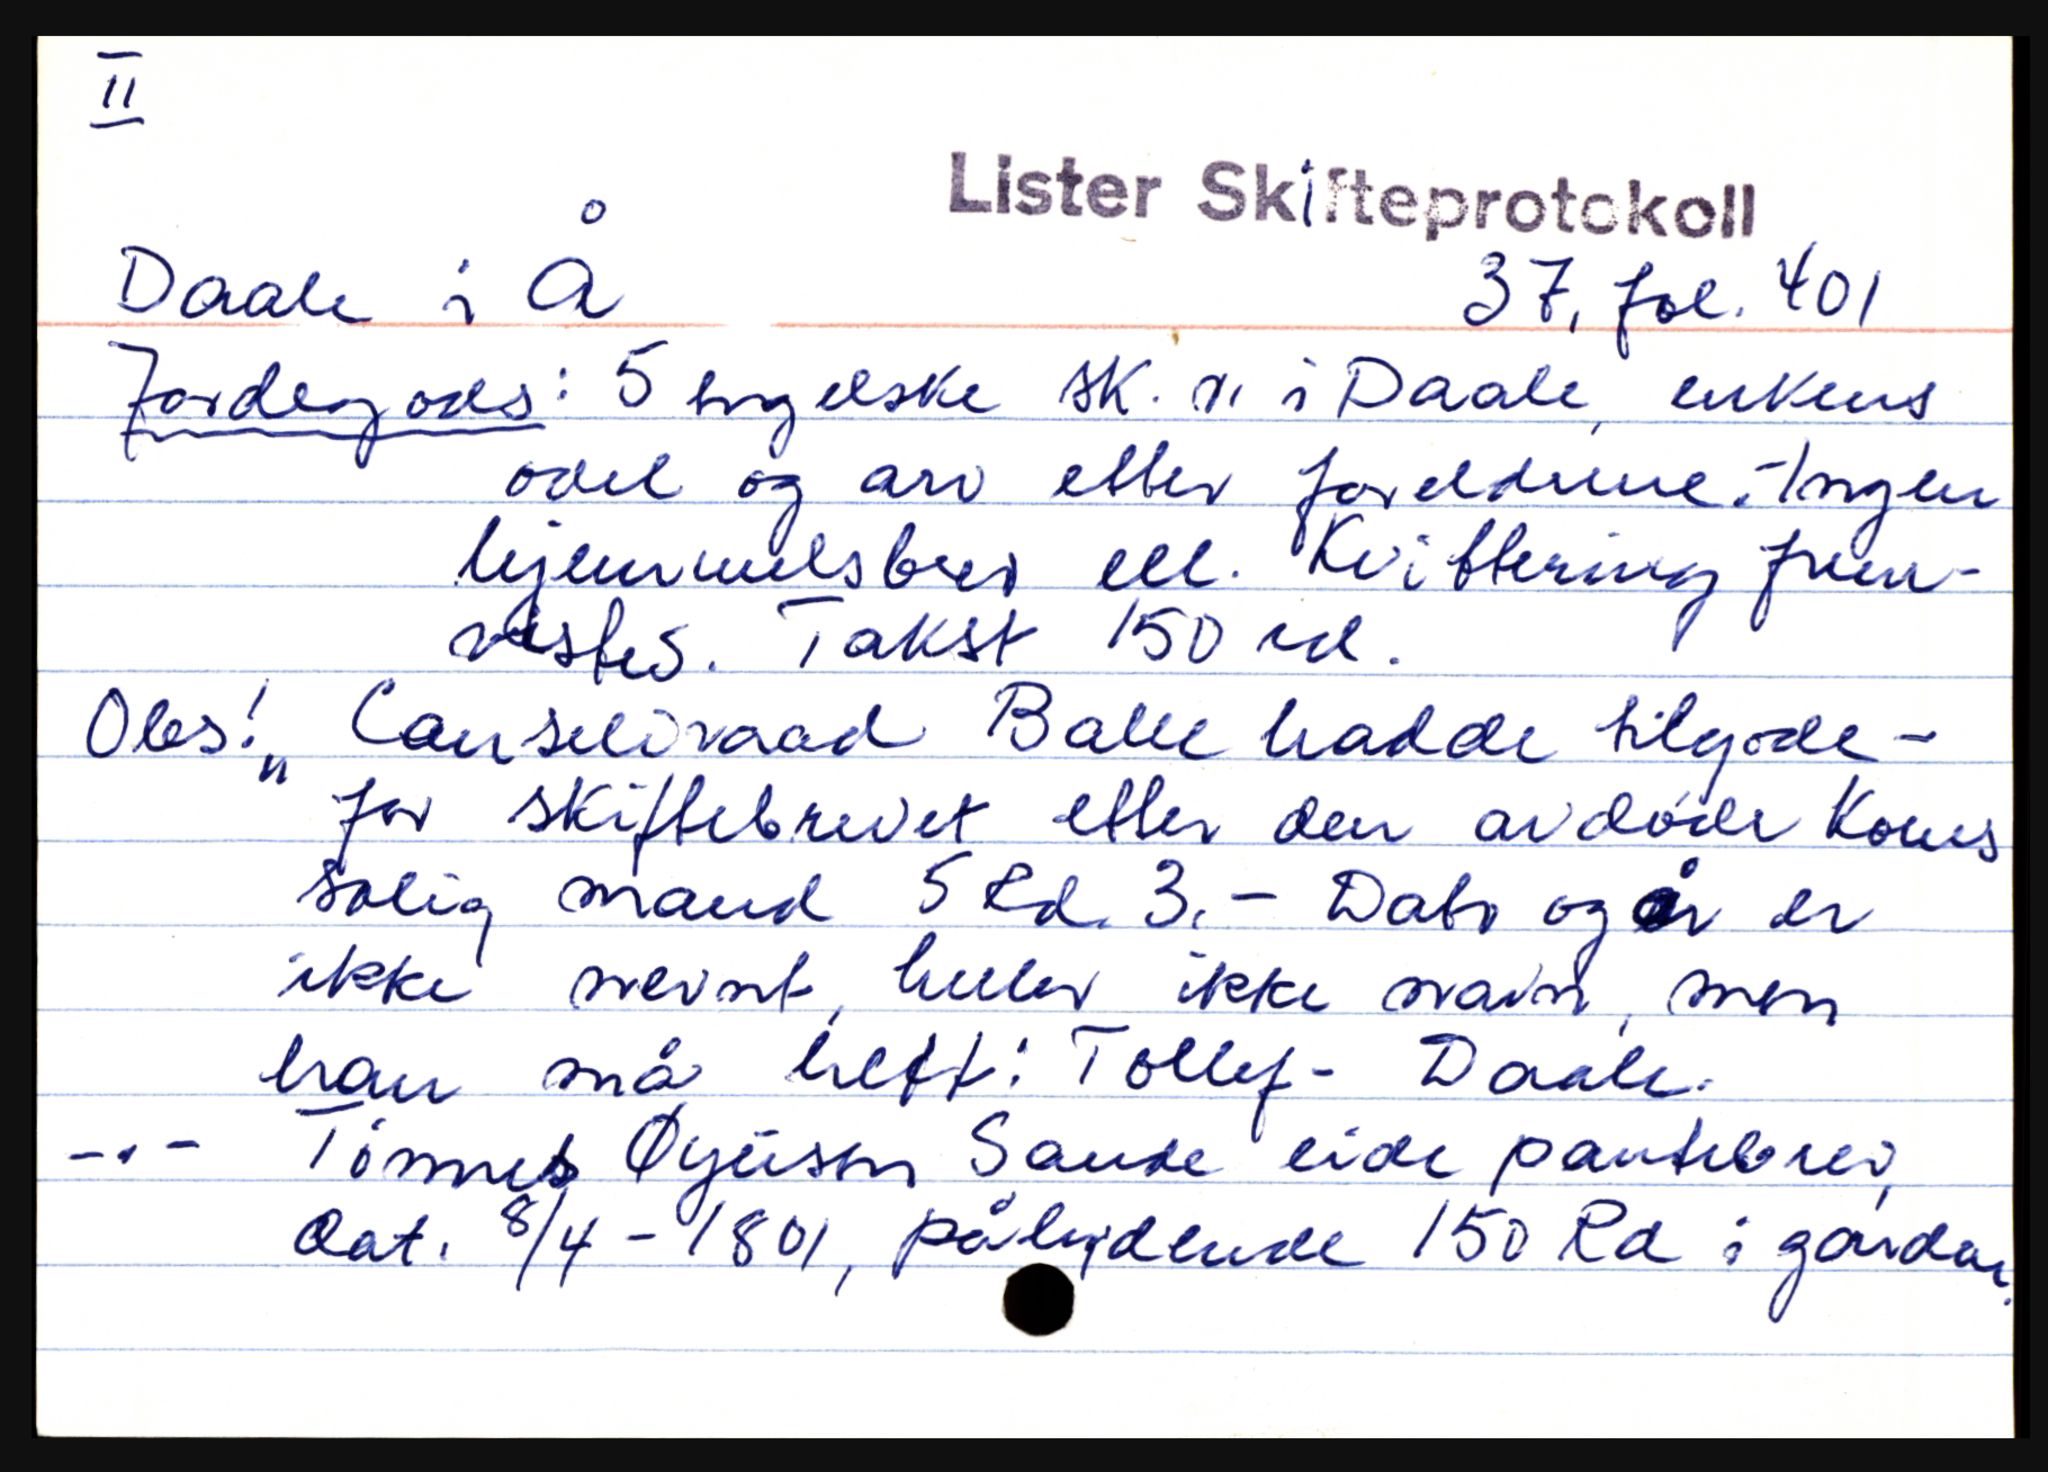 II
Lister Skifteprotokoll
Daale i Å 37, fol. 401
Jordegods: 5 engelske sk. i Daale, enkens
odel og arv etter foreldrene. - Ingen
hjemmelsbrev ell. Kvittering frem-
vistes. Takst 150 rd.
Obs! " Canseliraad Balle hadde tilgode -
for skiftebrevet etter den avdøde Kones
salig mand 5 Rd. 3. - Dato og år er
ikke nevnt, heller ikke navn, men
han må hett: Tollef - Daale.
-"- Tønnes Øyusen Sande eide pantebrev,
dat. 8/4 - 1801, pålydende 150 Rd i gården.